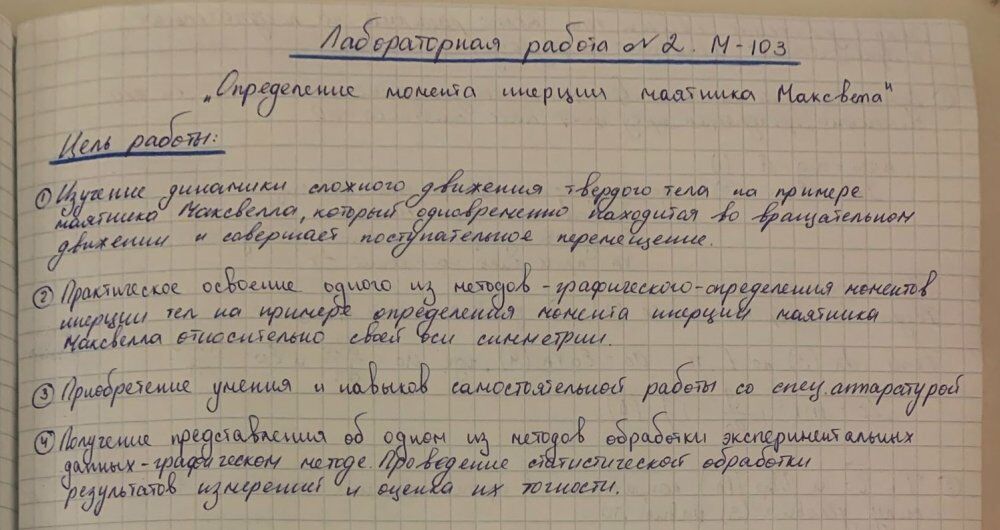 Лабораторная работа №2. М-103
„Определение момента инерции маятника Максвела"
Цель работы:
① Изучение динамики сложного движения твёрдого тела на примере
маятника Максвелла, который одновременно находится во вращательном
движении и совершает поступательное перемещение.
② Практическое освоение одного из методов - графического - определения моментов
инерции тел на примере определения момента инерции маятника
Максвелла относительно своей оси симметрии.
③ Приобретение умения и навыков самостоятельной работы со спец. аппаратурой
④ Получение представления об одном из методов обработки экспериментальных
данных - графическом методе. Проведение статистической обработки
результатов измерений и оценка их точности.